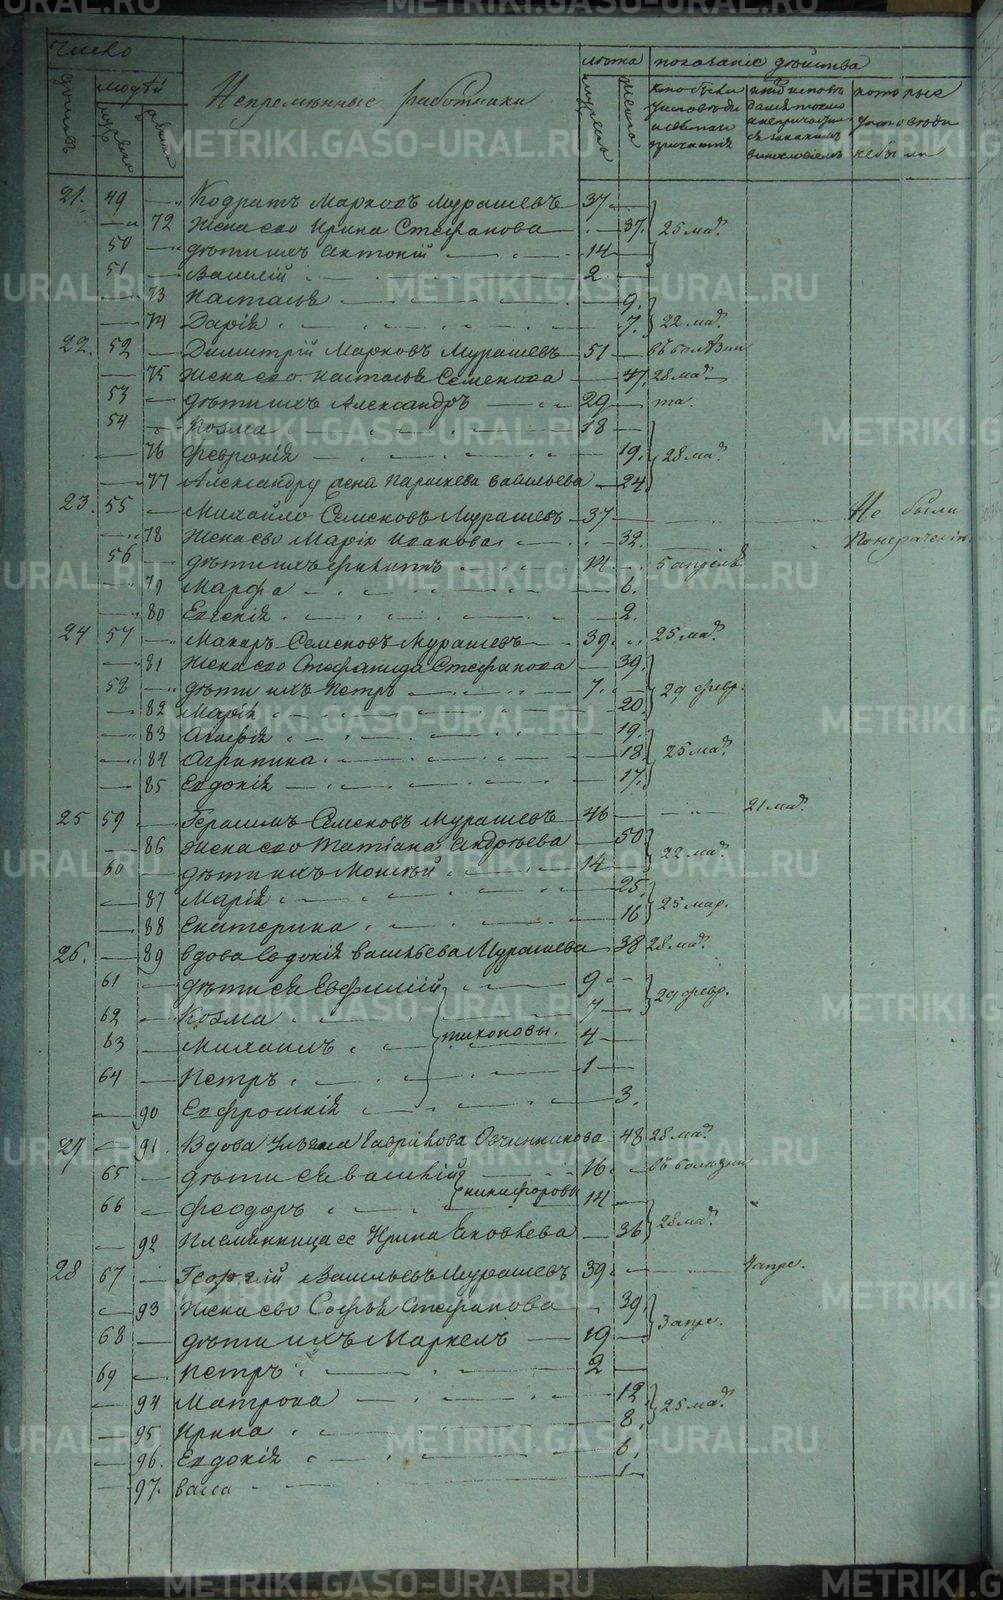 Число
Домовъ
людей
мужеска
женска
Непремѣнные работники
лѣта
мужеска
женска
показаніе дѣйства
кто были
у исповѣди
и святаго
причастія
которые
у исповѣди
не были
21. 49 Кодратъ Марковъ Мурашевъ 37
72 Жена его Ирина Стефанова 37. 25 мар.
50 дѣти ихъ Антоній 14
51 Василій 2
73 Настасья 9.
74 Дарія 7. 22 мар.
22. 52 Димитрій Марковъ Мурашевъ 51 въ болѣзни
75 Жена его Настасья Семенова 47. 28 мар.
53 дѣти ихъ Александръ 29
54 Козма 18
76 Февронія 19. 28 мар.
77 Александру жена Параскева Васильева 24
23. 55 Михайло Семеновъ Мурашевъ 37 Не были
78 Жена его Марія Иванова 32. по нераченію
56 дѣти ихъ Никита 14 5 апрѣля
79 Марфа 6.
80 Евгенія 2.
24 57 Макаръ Семеновъ Мурашевъ 39. 25 мар.
81 Жена его Стефанида Стефанова 39.
58 дѣти ихъ Петръ 7. 29 февр.
82 Марія 20.
83 19.
84 Агрипина 18. 25 мар.
85 Евдокія 17.
25 59 Герасимъ Семеновъ Мурашевъ 46 21 мар.
86 Жена его Татіана Андреева 50
60 дѣти ихъ Моисей 14 22 мар.
87 Марія 25.
88 Екатерина 16 25 мар.
26. 89 вдова Евдокія Васильева Мурашева 38 28 мар.
61 дѣти ея Евфимій 9
62 Козма 7 29 февр.
63 Михаилъ Тихоновы. 4
64 Петръ 1
90 Евфросинія 3.
27 91. Вдова Ульяна Гаврилова Овчинникова 48 28 мар.
65 дѣти ея Василій 16 въ болѣзни
66 Феодоръ Никифоровы 14
92 Племянница ее Ирина Яковлева 36 28 мар.
28 67 Георгій Васильевъ Мурашевъ 39. 4 апре.
93 Жена его Софья Стефанова 39.
68 дѣти ихъ Маркелъ 19 3 апре.
69 Петръ 2
94 Матрона 12
95 Ирина 8. 25 мар.
96. Евдокія 6.
97. Васса 1
METRIKI.GASO-URAL.RU